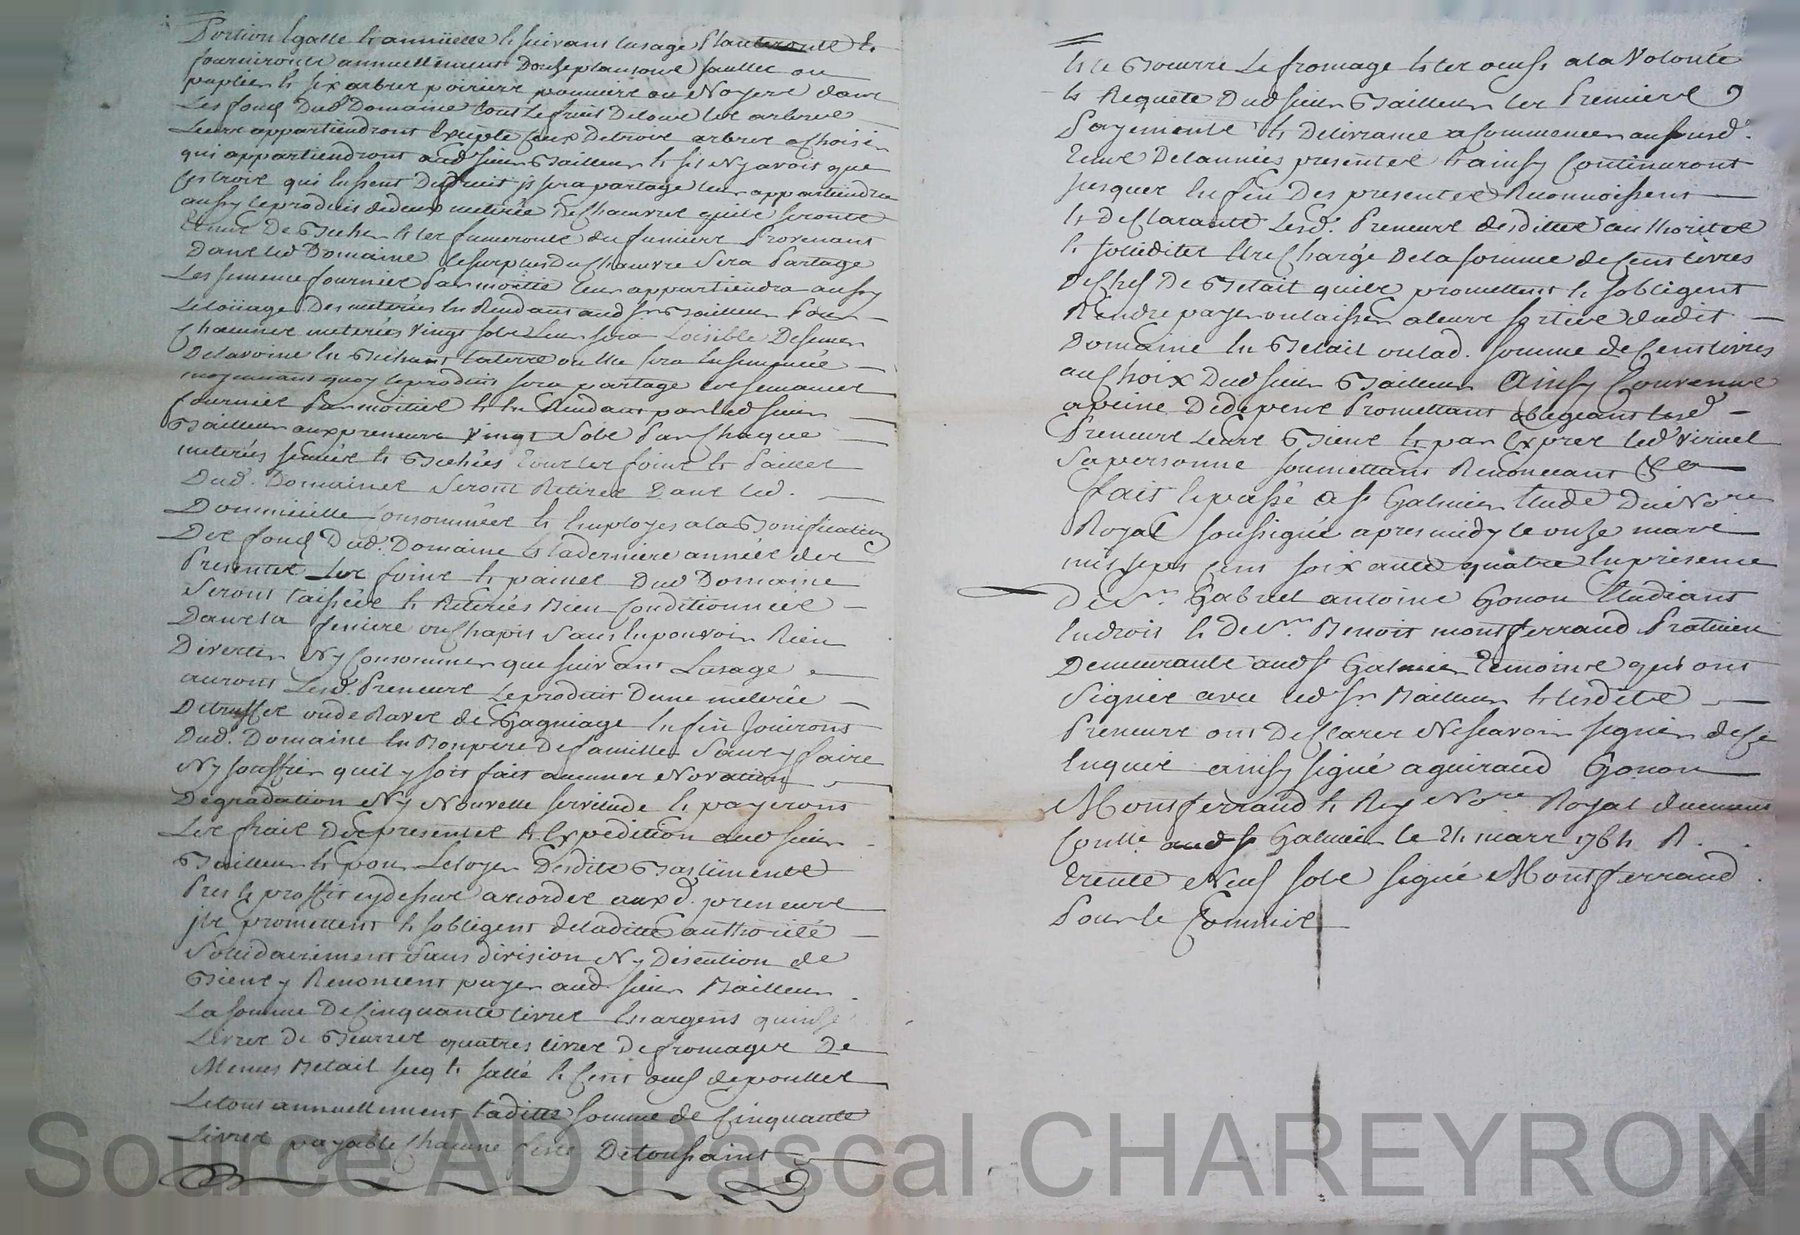 Portion Egalle & annuelle & suivant lusage Planteronts &
fournironts annuellement Douze plansons saulles ou
puplier & six arbres poiriers pommiers ou Noyers dans
Les fond Dud. Domaine tout Le fruit De tous les arbres
Leurs appartiendront Exepte Ceux De trois arbres a Choisir
qui appartiendront aud. sieur Bailleur & sil Ny avoit que
Ces trois qui Eussent Du fruit il sera partagé leur appartiendra
aussy le produit de deux meterée De Chanvres quils seronts
tenus De Bicher & les fumeronts du fumiers Provenant
Dans led. Domaine Le surplus Du Chanvre Sera Partagé
Les semence fournies Par moitié leur appartiendra aussy
Le loüage Des meterées En Rendant aud. sr Bailleur Pour
Chacunes meterées Vingt sols Leur sera Loisible De semer
De lavoine En Bichant la terre ou Elle sera Ensemencée
moyennant quoy le produit sera partagé les semances
fournies Par moitiés & En Rendant par led. sieur
Bailleur aux preneurs Vingt Sols Par Chaque
meterées semées & Bichées tous les foins & Pailles
Dud. Domaines Seront Retirés Dans led.
Dommicille Consommées & Employés a la Bonification
Des fond Dud. Domaine & la derniere année des
Presentes Les foins & pailles Dud. Domaine
Seront laissées & Reterées Bien Conditionnées
Dans la feniere ou Chapis Sans En pouvoir Rien
Divertir Ny Consommer que suivant Lusage
auront Lesd. Preneurs Le produit Dune meterée
De truffes ou de Raves de Gagniage En fin Jouirons
Dud. Domaine En Bonpere De famille Sans y faire
Ny souffrir quil y soit fait aucunes Novation
Degradation Ny Nouvelle servitude & payerons
Les frais Des presentes & Expedition aud. sieur
Bailleur & pour Le loyer Desdits Bastiments
Pres & proffit cy dessus acordés auxd. preneurs
ils promettent & sobligent de ladite authorité
Solidairement Sans division Ny Discution de
Biens y Renoncent payer aud. sieur Bailleur
La somme De Cinquante livres En argent quinze
Livres de Beurres quatres livres De fromages De
Menus Betail secq & salle & Cent oeuf de poulles
Le tous annuellement ladite somme de Cinquante
Livres payable Chacune feste De toussaint
& le Beurre Le fromage & les oeufs a la Volonté
& Requete Dud. sieur Bailleur les Premiers
Payements & Delivrance a Commencer aususd.
tems De lannées presentes & ainsy Continuront
jusques En fin Des presentes Reconnoissent
& Declarants Lesd. Preneurs desdittes authorités
& soliditées Etre Chargé De la somme de Cent livres
De Chef De Betail quils promettent & sobligent
Rendre payer ou laisser a leurs sorties dudit
Domaine En Betail ou lad. somme de Cent livres
au Choix Dud. sieur Bailleur Ainsy Convenus
a peine De depens Promettant obligeant lesd.
Preneurs Leurs Biens & par Exprès led. Viriel
Sa personne soumettant Renoncant &a
fait & passé a st Galmier Etude Du Nore
Royal soussigné apres midy le onze mars
mil sept cent soixante quatre En presence
De sr. Gabriel antoine Gonon Etudiant
En droit & De sr. Benoit montferrand Praticien
Demeurants aud. st Galmier temoins qui ont
Signés avec led. sr Bailleur & lesdits
Preneurs ont Declarés Ne scavoir signer de Ce
Enquis ainsy signé aguiraud Gonon
Montferrand & Rey Nore Royal duement
Controllé aud. st Galmier le 21 mars 1764 R.
trente Neuf sols signé Montferrand
Pour le Commis
Source AD Pascal CHAREYRON